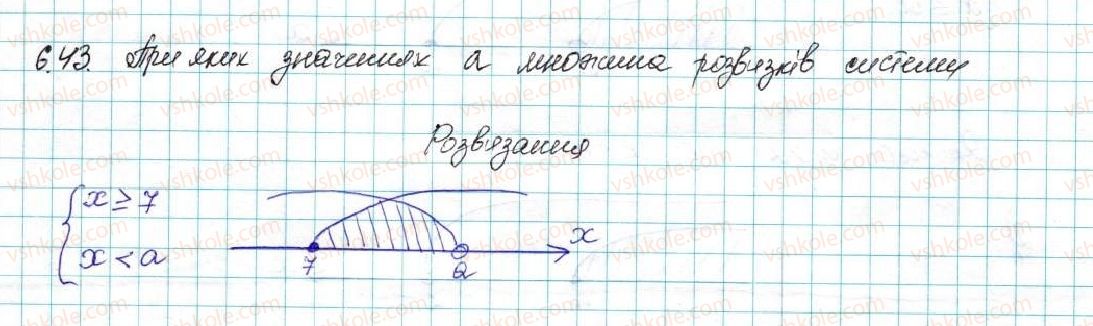 6.43. При яких значеннях a множина розвязків системи
Розвязання
x ≥ 7
x < a
7 a x